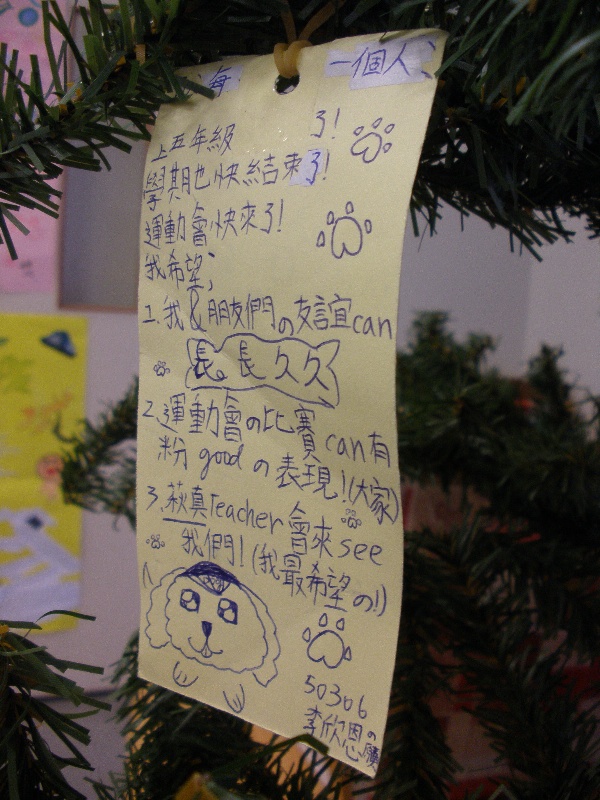 海 一個人、
上五年級 了!
學期也快結束了!
運動會快來了!
我希望;
1.我&朋友們の友誼can
長長久久
2.運動會の比賽can有
粉good の表現!(大家)
3.萩真Teacher會來see
我們!(我最希望の!)
50306
李欣恩の願